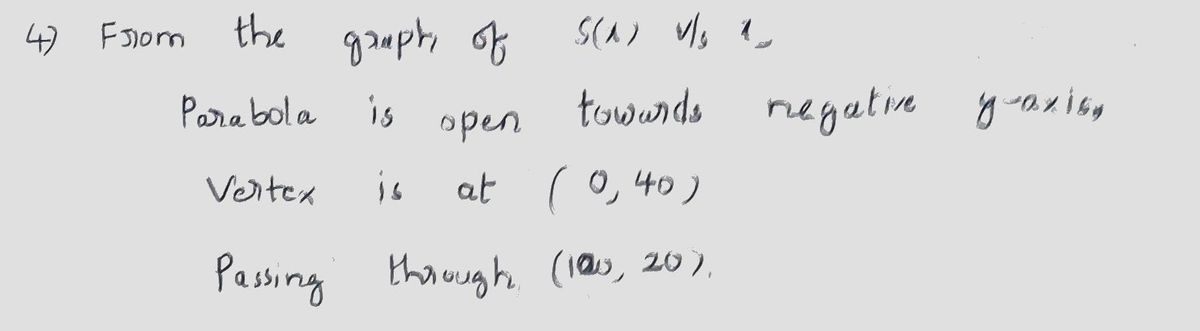 4) From the graph, of S(1) v/s 1
Parabola is open towards negative y-axis,
Vertex is at (0, 40)
Passing through (100, 20).